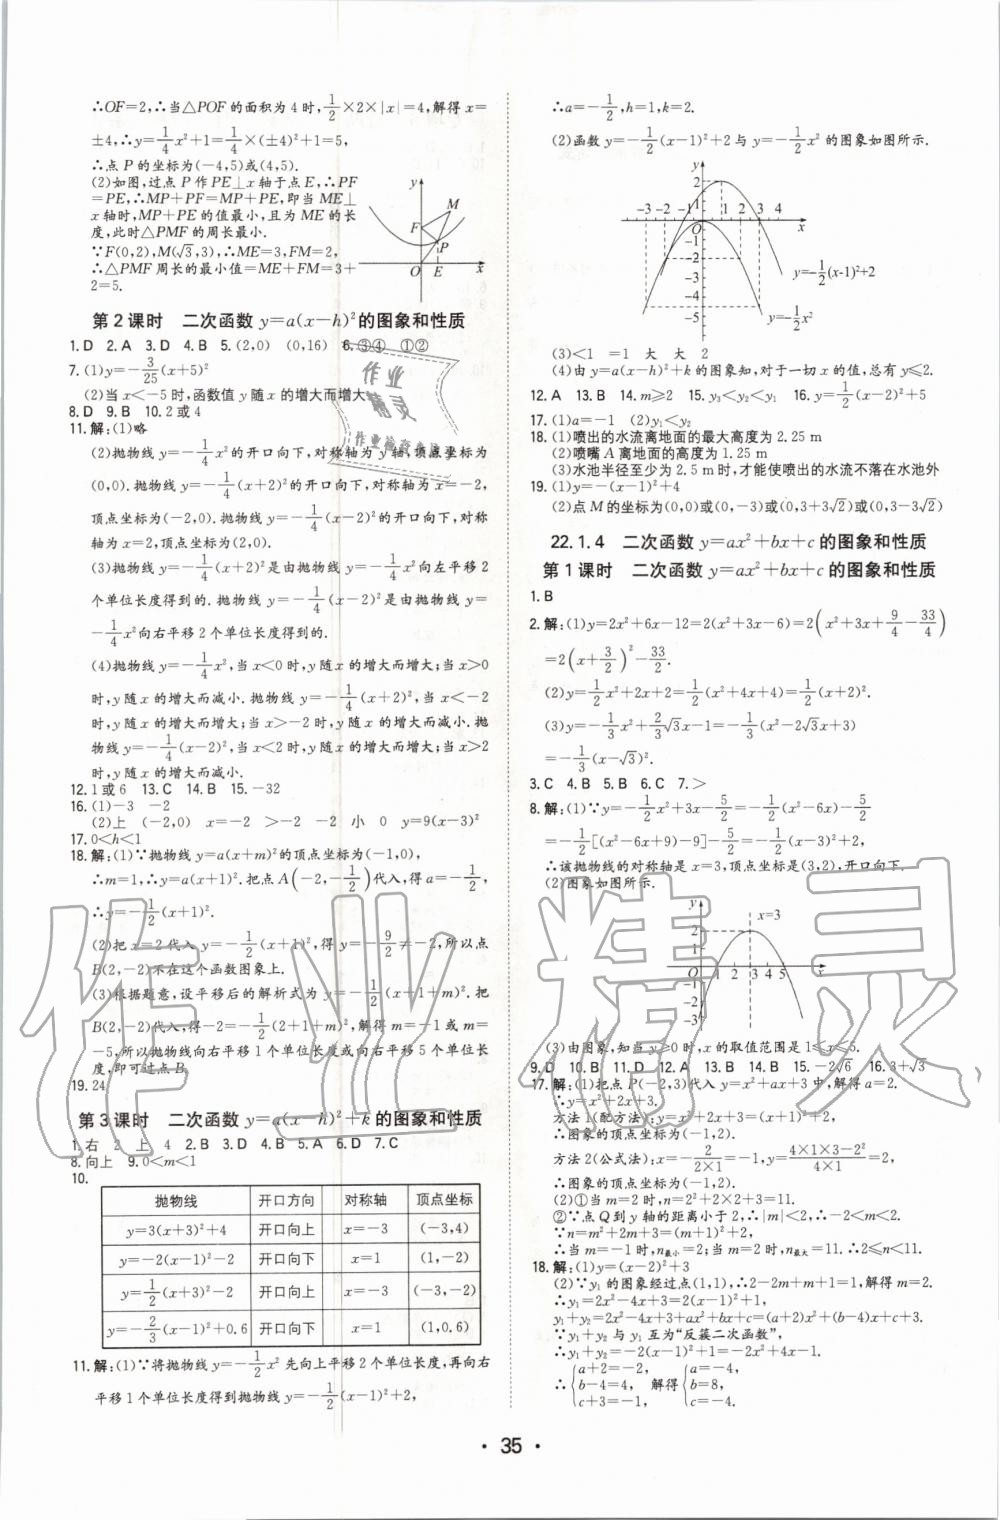 ∴OF=2,∴当△POF的面积为4时,1/2×2×|x|=4,解得x=
±4,∴y=1/4x²+1=1/4×(±4)²+1=5,
∴点P的坐标为(-4,5)或(4,5).
(2)如图,过点P作PE⊥x轴于点E,∴PF
=PE,∴MP+PF=MP+PE,即当ME⊥
x轴时,MP+PE的值最小,且为ME的长
度,此时△PMF的周长最小.
∵F(0,2),M(√3,3),∴ME=3,FM=2,
∴△PMF周长的最小值=ME+FM=3+
2=5.
y
M
F
P
O E x
第2课时 二次函数y=a(x-h)²的图象和性质
1.D 2.A 3.D 4.B 5.(2,0) (0,16) 6.③④ ①②
7.(1)y=-3/25(x+5)²
(2)当x<-5时,函数值y随x的增大而增大
8.D 9.B 10.2或4
11.解:(1)略
(2)抛物线y=-1/4x²的开口向下,对称轴为y轴,顶点坐标为
(0,0).抛物线y=-1/4(x+2)²的开口向下,对称轴为x=-2,
顶点坐标为(-2,0).抛物线y=-1/4(x-2)²的开口向下,对称
轴为x=2,顶点坐标为(2,0).
(3)抛物线y=-1/4(x+2)²是由抛物线y=-1/4x²向左平移2
个单位长度得到的.抛物线y=-1/4(x-2)²是由抛物线y=
-1/4x²向右平移2个单位长度得到的.
(4)抛物线y=-1/4x²,当x<0时,y随x的增大而增大;当x>0
时,y随x的增大而减小.抛物线y=-1/4(x+2)²,当x<-2
时,y随x的增大而增大;当x>-2时,y随x的增大而减小.抛
物线y=-1/4(x-2)²,当x<2时,y随x的增大而增大;当x>2
时,y随x的增大而减小.
12.1或6 13.C 14.B 15.-32
16.(1)-3 -2
(2)上 (-2,0) x=-2 >-2 -2 小 0 y=9(x-3)²
17.0<h<1
18.解:(1)∵抛物线y=a(x+m)²的顶点坐标为(-1,0),
∴m=1,∴y=a(x+1)².把点A(-2,-1/2)代入,得a=-1/2,
∴y=-1/2(x+1)².
(2)把x=2代入y=-1/2(x+1)²,得y=-9/2≠-2,所以点
B(2,-2)不在这个函数图象上.
(3)根据题意,设平移后的解析式为y=-1/2(x+1+m)².把
B(2,-2)代入,得-2=-1/2(2+1+m)²,解得m=-1或m=
-5,所以抛物线向右平移1个单位长度或向右平移5个单位长
度,即可过点B.
19.24
第3课时 二次函数y=a(x-h)²+k的图象和性质
1.右 2 上 4 2.B 3.D 4.B 5.A 6.D 7.C
8.向上 9.0<m<1
10.
抛物线 开口方向 对称轴 顶点坐标
y=3(x+3)²+4 开口向上 x=-3 (-3,4)
y=-2(x-1)²-2 开口向下 x=1 (1,-2)
y=1/2(x+3)²-2 开口向上 x=-3 (-3,-2)
y=-2/3(x-1)²+0.6 开口向下 x=1 (1,0.6)
11.解:(1)∵将抛物线y=-1/2x²先向上平移2个单位长度,再向右
平移1个单位长度得到抛物线y=-1/2(x-1)²+2,
∴a=-1/2,h=1,k=2.
(2)函数y=-1/2(x-1)²+2与y=-1/2x²的图象如图所示.
y
2
1
-3 -2 -1 O 1 2 3 4 x
-1
-2
-3
-4
-5
y=-1/2(x-1)²+2
y=-1/2x²
(3)<1 =1 大 大 2
(4)由y=a(x-h)²+k的图象知,对于一切x的值,总有y≤2.
12.A 13.B 14.m≥2 15.y₃<y₂<y₁ 16.y=1/2(x-2)²+5
17.(1)a=-1 (2)y₁<y₂
18.(1)喷出的水流离地面的最大高度为2.25 m
(2)喷嘴A离地面的高度为1.25 m
(3)水池半径至少为2.5 m时,才能使喷出的水流不落在水池外
19.(1)y=-(x-1)²+4
(2)点M的坐标为(0,0)或(0,-3)或(0,3+3√2)或(0,3-3√2)
22.1.4 二次函数y=ax²+bx+c的图象和性质
第1课时 二次函数y=ax²+bx+c的图象和性质
1.B
2.解:(1)y=2x²+6x-12=2(x²+3x-6)=2(x²+3x+9/4-33/4)
=2(x+3/2)²-33/2.
(2)y=1/2x²+2x+2=1/2(x²+4x+4)=1/2(x+2)².
(3)y=-1/3x²+2/3√3x-1=-1/3(x²-2√3x+3)
=-1/3(x-√3)².
3.C 4.B 5.B 6.C 7.>
8.解:(1)∵y=-1/2x²+3x-5/2=-1/2(x²-6x)-5/2
=-1/2[(x²-6x+9)-9]-5/2=-1/2(x-3)²+2,
∴该抛物线的对称轴是x=3,顶点坐标是(3,2),开口向下.
(2)图象如图所示.
y x=3
2
1
O 1 2 3 4 5 x
-1
-2
-3
(3)由图象,知当y≥0时,x的取值范围是1≤x≤5.
9.D 10.B 11.D 12.A 13.B 14.B 15.-2√6 16.3+√3
17.解:(1)把点P(-2,3)代入y=x²+ax+3中,解得a=2.
∴y=x²+2x+3.
方法1(配方法):y=x²+2x+3=(x+1)²+2,
∴图象的顶点坐标为(-1,2).
方法2(公式法):x=-2/(2×1)=-1,y=(4×1×3-2²)/(4×1)=2,
∴图象的顶点坐标为(-1,2).
(2)①当m=2时,n=2²+2×2+3=11.
②∵点Q到y轴的距离小于2,∴|m|<2,∴-2<m<2.
∵n=m²+2m+3=(m+1)²+2,
∴当m=-1时,n最小=2;当m=2时,n最大=11.∴2≤n<11.
18.解:(1)y=(x-2)²+3
(2)∵y₁的图象经过点(1,1),∴2-2m+m+1=1,解得m=2.
∴y₁=2x²-4x+3=2(x-1)²+1,
y₁+y₂=2x²-4x+3+ax²+bx+c=(a+2)x²+(b-4)x+c+3.
∵y₁+y₂与y₁互为“反簇二次函数”,
∴y₁+y₂=-2(x-1)²+1=-2x²+4x-1.
∴{a+2=-2, b-4=4, c+3=-1, 解得{a=-4, b=8, c=-4.
• 35 •
作业精灵